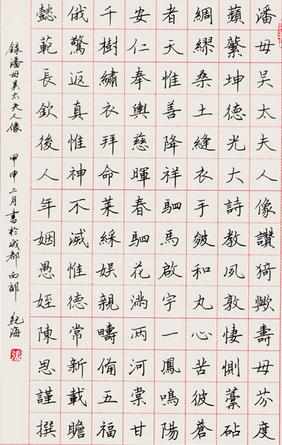 潘母吴太夫人像讚猗歟壽母芬度
蘋蘩坤德光大詩教夙敦悽惻藁砧
綢繆桑土縫衣手皴和丸心苦彼蒼
者天惟善降祥駟馬啟宇一鳳鳴陽
安仁奉輿慈暉春駟花滿兩河棠甘
千樹繡衣拜命莱綵娱親疇備五福
俄驚返真惟神不滅惟德常新載瞻
懿範長欽後人年姻愚姪陳思謹撰
錄潘母吴太夫人像 甲申三月書於成都西部 紀海